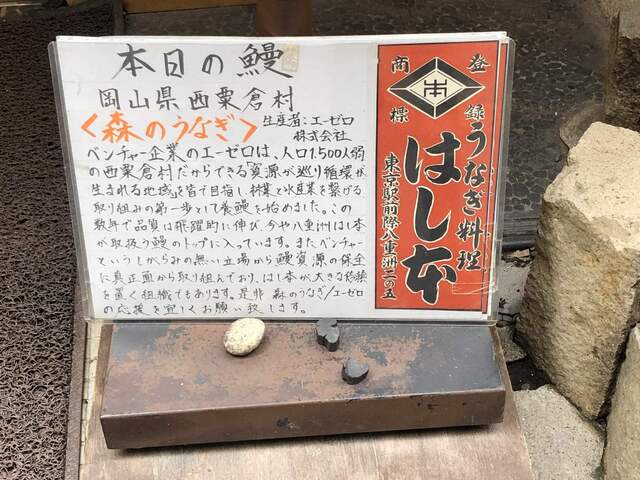 本日の鰻
岡山県西粟倉村
〈森のうなぎ〉
生産者:エーゼロ
株式会社
ベンチャー企業のエーゼロは、人口1.500人弱
の西粟倉村だからできる「資源が巡り循環が
生まれる地域」を皆で目指し、林業と水産業を繋げる
取り組みの第一歩として養鰻を始めました。この
数年で品質は飛躍的に伸び、今や八重洲はし本
が取扱う鰻のトップに入っています。またベンチャー
というしがらみの無い立場から鰻資源の保全
に真正面から取り組んでおり、はし本が大きな信頼
を置く組織でもあります。是非 森のうなぎ/エーゼロ
の応援を宜しくお願い致します。
登録
商標
うなぎ料理
はし本
東京駅前際八重洲二の五